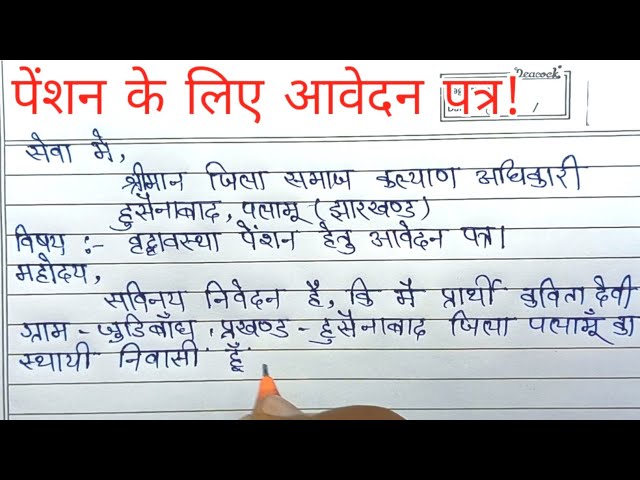 Deacock
पेंशन के लिए आवेदन पत्र!
सेवा में,
श्रीमान जिला समाज कल्याण अधिकारी
हुसैनाबाद, पलामू (झारखण्ड)
विषय :- वृद्धावस्था पेंशन हेतु आवेदन पत्र।
महोदय,
सविनय निवेदन है, कि मैं प्रार्थी कविता देवी
ग्राम - जुडिबाँध, प्रखण्ड - हुसैनाबाद जिला पलामूँ का
स्थायी निवासी हूँ